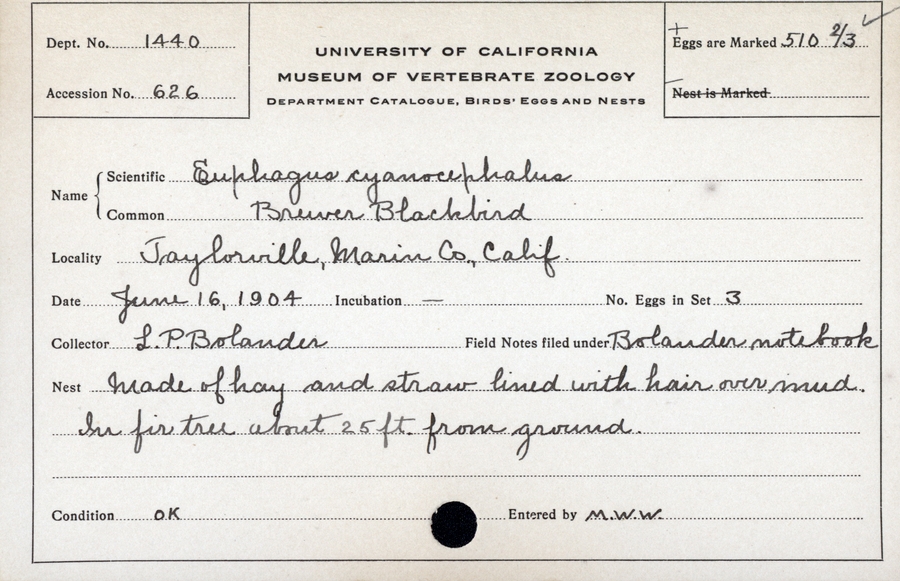 Dept. No. 1440
Accession No. 626
UNIVERSITY OF CALIFORNIA
MUSEUM OF VERTEBRATE ZOOLOGY
DEPARTMENT CATALOGUE, BIRDS' EGGS AND NESTS
+
Eggs are Marked 510 2/3 ✓
Nest is Marked
Name
Scientific Euphagus cyanocephalus
Common Brewer Blackbird
Locality Taylorville, Marin Co., Calif.
Date June 16, 1904 Incubation — No. Eggs in Set 3
Collector L.P. Bolander Field Notes filed under Bolander notebook
Nest Made of hay and straw lined with hair over mud.
In fir tree about 25 ft. from ground.
Condition OK Entered by M.W.W.